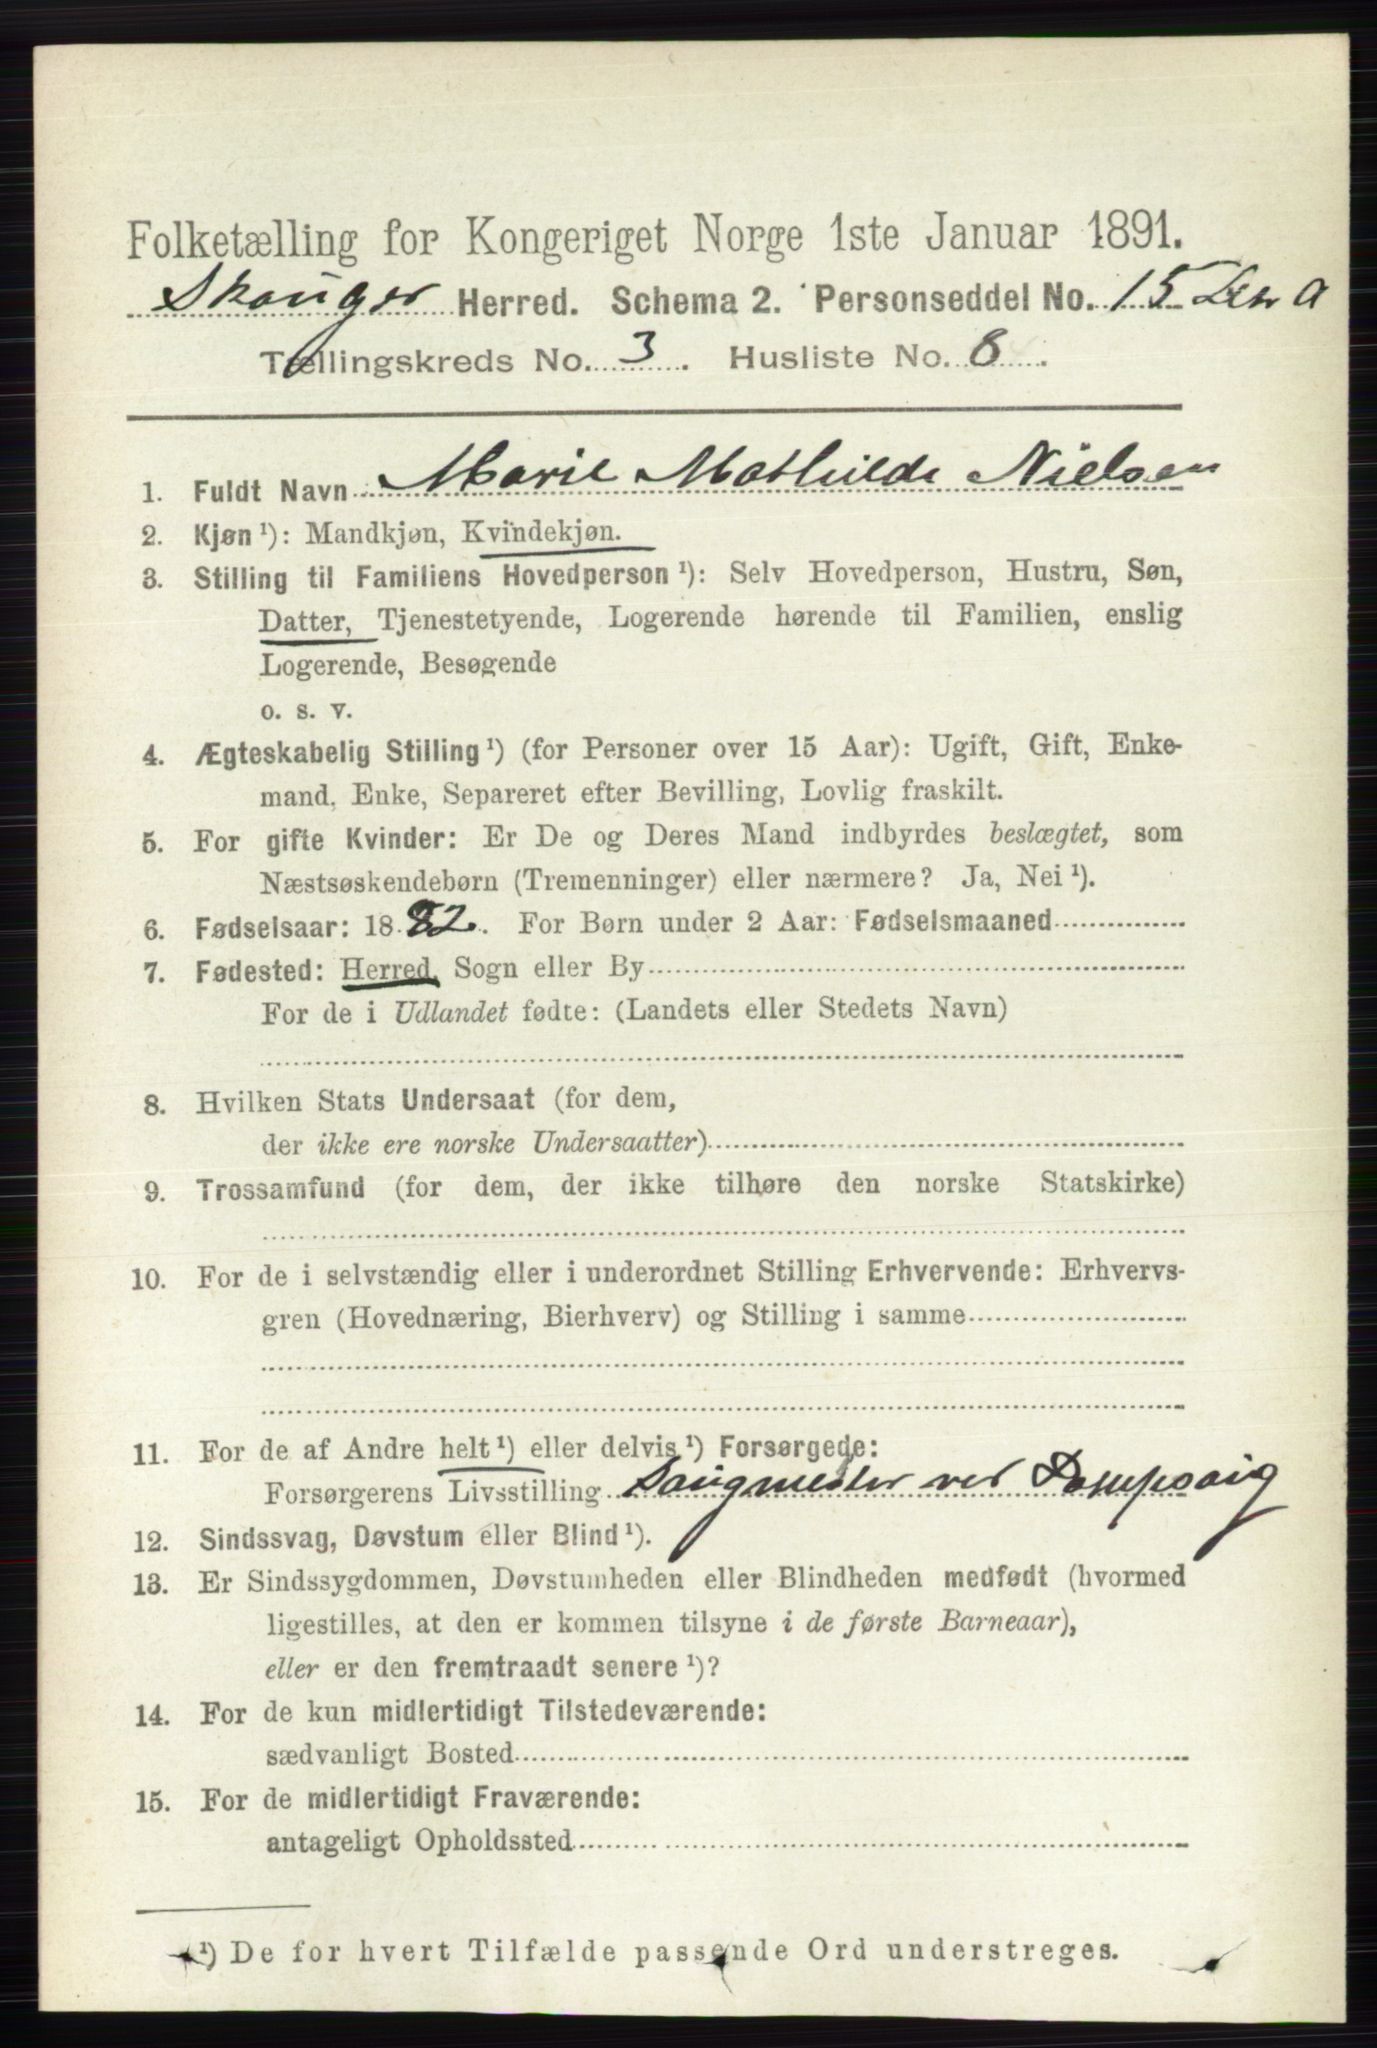 Folketælling for Kongeriget Norge 1ste Januar 1891.
Skouger Herred. Schema 2. Personseddel No. 15 Litr a
Tællingskreds No. 3. Husliste No. 8.
1. Fuldt Navn Marie Mathilde Nielsen
2. Kjøn ¹): Mandkjøn, Kvindekjøn.
3. Stilling til Familiens Hovedperson ¹): Selv Hovedperson, Hustru, Søn,
Datter, Tjenestetyende, Logerende hørende til Familien, enslig
Logerende, Besøgende
o. s. v.
4. Ægteskabelig Stilling ¹) (for Personer over 15 Aar): Ugift, Gift, Enke-
mand, Enke, Separeret efter Bevilling, Lovlig fraskilt.
5. For gifte Kvinder: Er De og Deres Mand indbyrdes beslægtet, som
Næstsøskendebørn (Tremenninger) eller nærmere? Ja, Nei ¹).
6. Fødselsaar: 1882. For Børn under 2 Aar: Fødselsmaaned
7. Fødested: Herred, Sogn eller By
For de i Udlandet fødte: (Landets eller Stedets Navn)
8. Hvilken Stats Undersaat (for dem,
der ikke ere norske Undersaatter)
9. Trossamfund (for dem, der ikke tilhøre den norske Statskirke)
10. For de i selvstændig eller i underordnet Stilling Erhvervende: Erhvervs-
gren (Hovednæring, Bierhverv) og Stilling i samme
11. For de af Andre helt ¹) eller delvis ¹) Forsørgede:
Forsørgerens Livsstilling Saugmester ved Dampsaug
12. Sindssvag, Døvstum eller Blind ¹).
13. Er Sindssygdommen, Døvstumheden eller Blindheden medfødt (hvormed
ligestilles, at den er kommen tilsyne i de første Barneaar),
eller er den fremtraadt senere ¹)?
14. For de kun midlertidigt Tilstedeværende:
sædvanligt Bosted
15. For de midlertidigt Fraværende:
antageligt Opholdssted
¹) De for hvert Tilfælde passende Ord understreges.